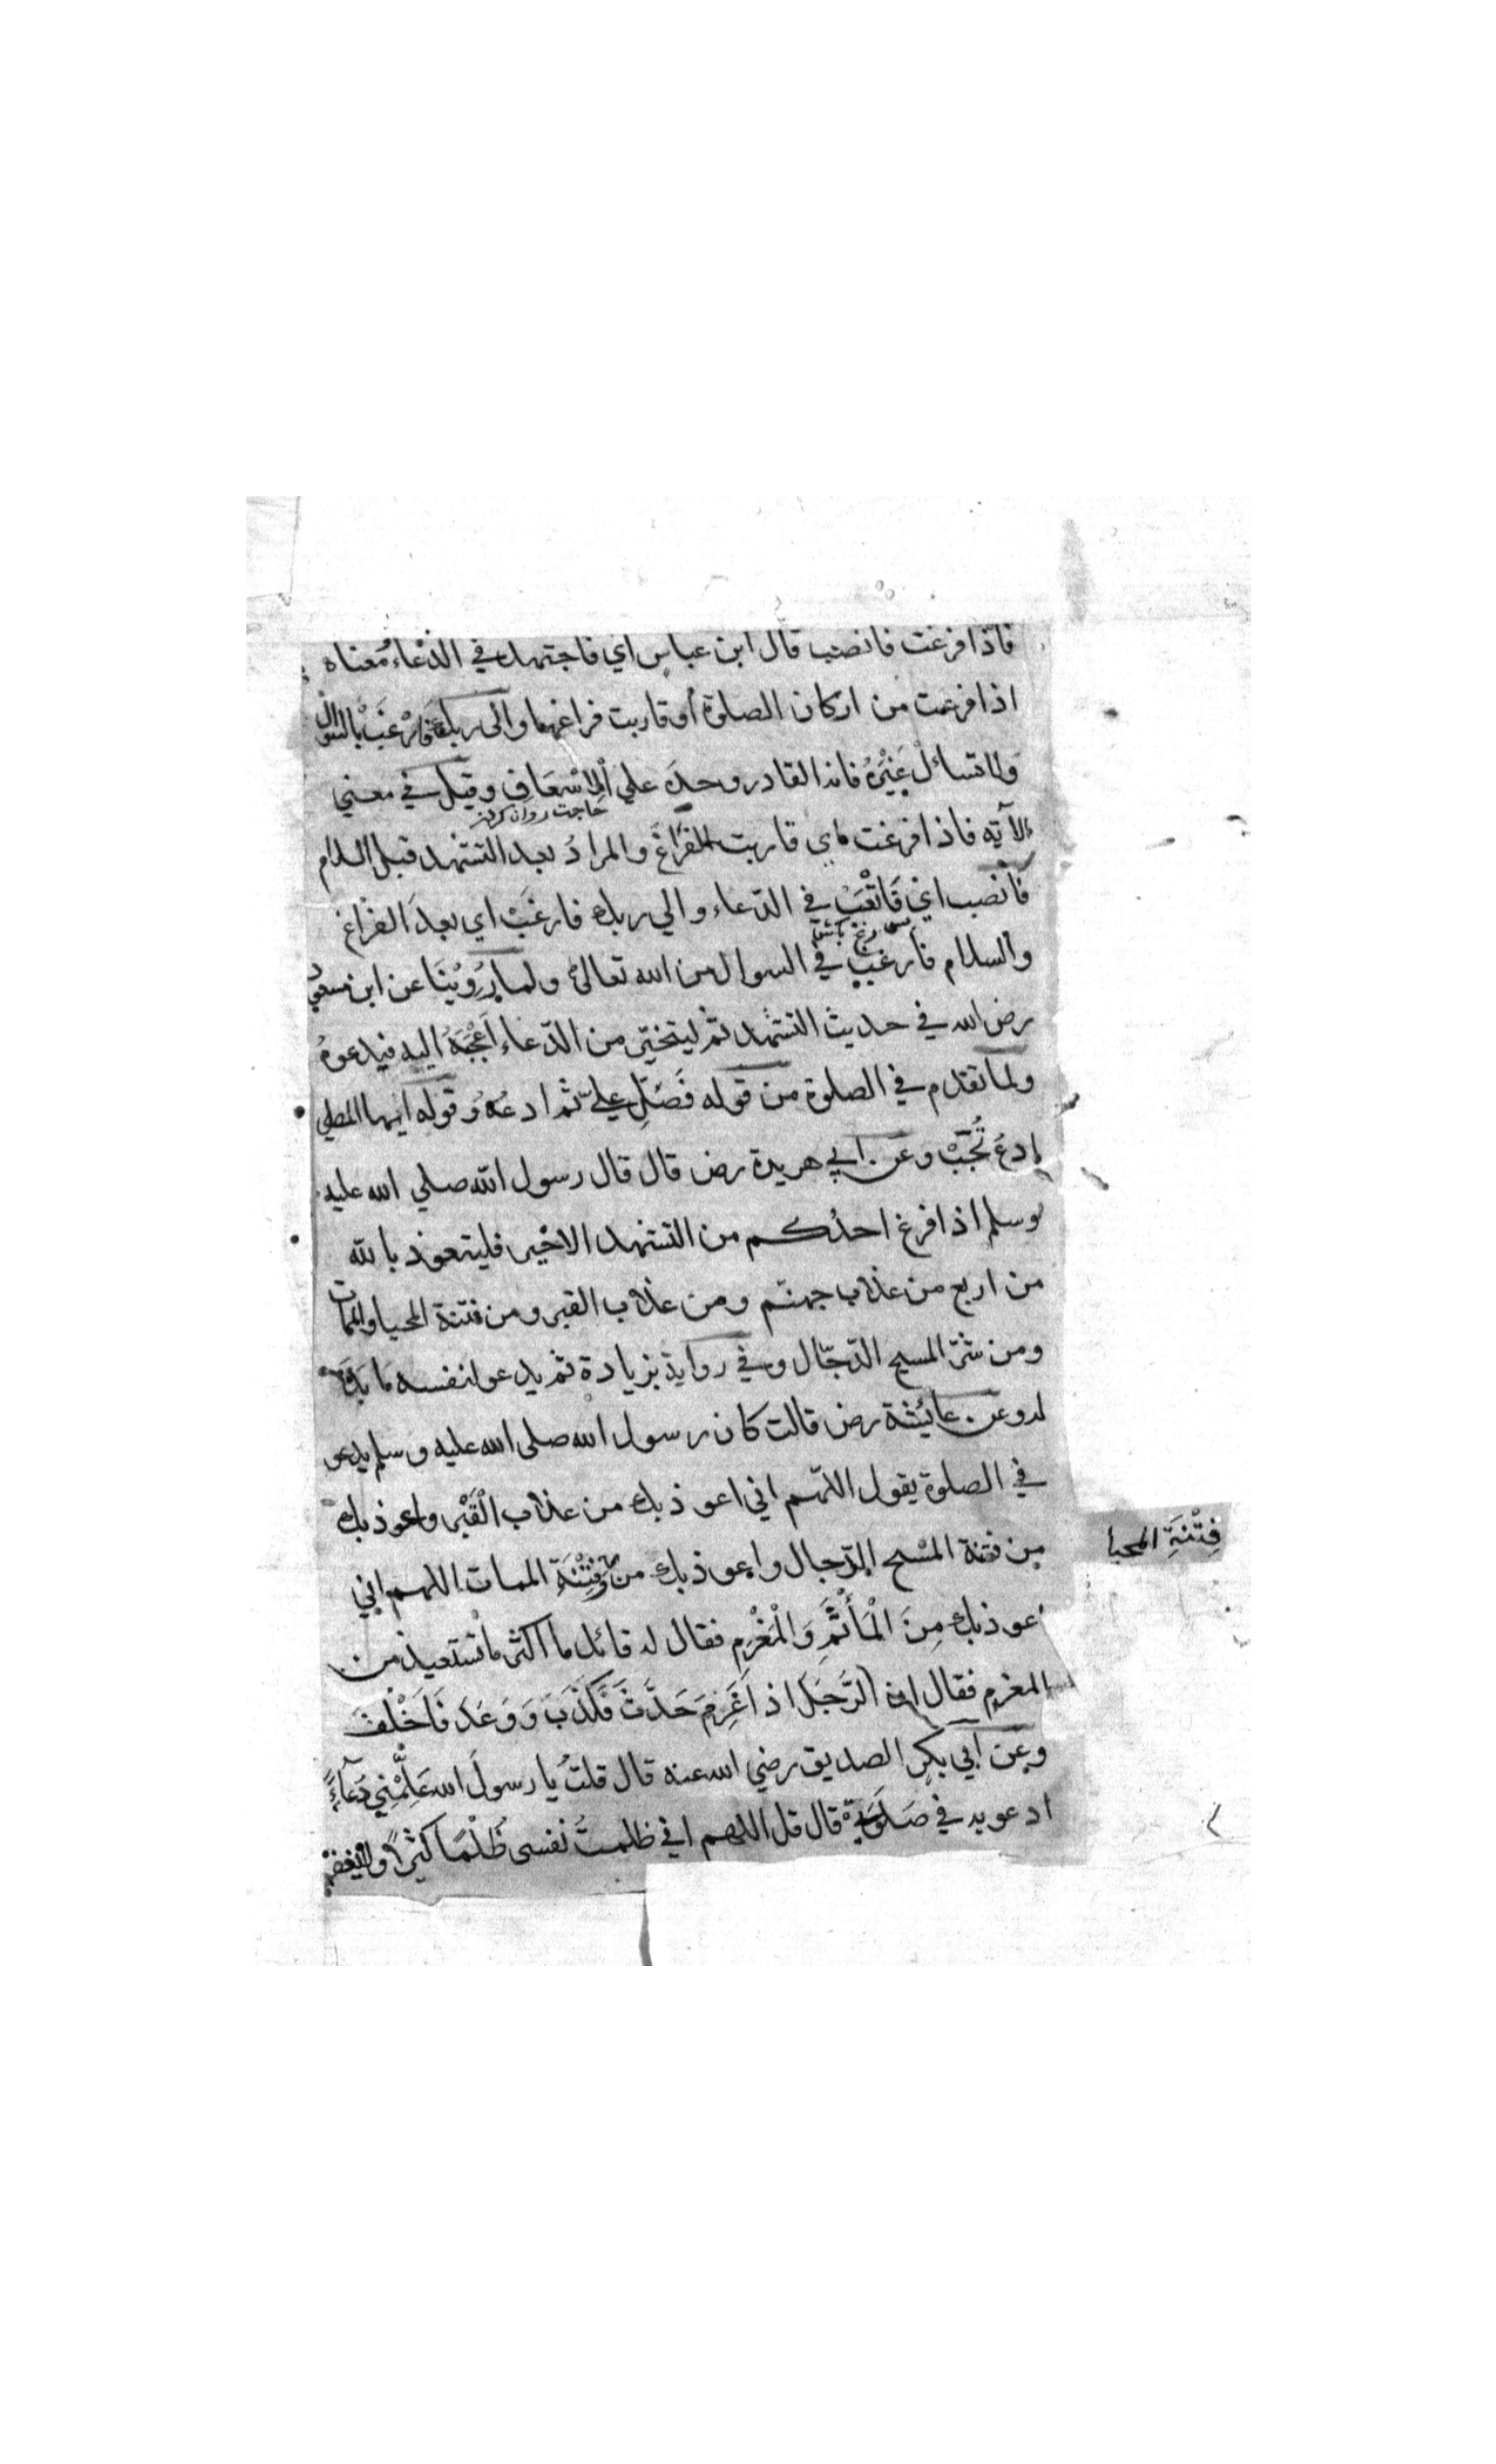 فاذا فرغت فانصب قال ابن عباسٍ اي فاجتهد في الدّعاء معناه
اذا فرغت من اركان الصلوة أو قاربت فراغها والى ربك فَارْغَبْ بالسّؤال
ولا تسائلْ غَيْرَهُ فانه القادر وحدَه علي الاسْعَافِ وقيل في معني
حاجت روان كردن
الآيه فاذا فرغت اي قاربت الفراغَ والمرادُ بعد التشهد قبل السلام
فانصب اي فَاتْعَبْ في الدّعاء والي ربك فارغبْ اي بعدَ الفراغ
والسلام فارغب في السوال من الله تعالىٰ ولما رُوِّيْنَا عن ابن مسعود
رض الله في حديث التشهد ثم ليتخيّر من الدّعاء اَعْجَبَهُ اليه فيدعوهُ
ولما تقدم في الصلوة من قوله فَصَلِّ عليّ ثم ادعُهُ وقوله ايها المصلي
ادعُ تُجَبْ وعن ابي هريرة رض قال قال رسول الله صلي الله عليه
وسلم اذا فرغ احدُكم من التشهد الاخير فليتعوذ بالله
من اربع من عذاب جهنم ومن عذاب القبر ومن فتنة المحيا والممات
ومن شرّ المسيح الدّجّال وفي رواية بزيادة ثم يدعو لنفسه ما بدا
له وعن عائشة رض قالت كان رسول الله صلى الله عليه وسلم يدعو
في الصلوة يقول اللّهم اني اعوذ بك من عذاب الْقَبْرِ واعوذ بك
من فتنة المسْيح الدّجال واعوذ بك من وَفِتْنَةِ الممات اللهم اني
فِتْنَةِ المحيا
اعوذ بك مِنَ الْمَأْثَمِ وَالْمَغْرَمِ فقال له قائل ما اكثر ما تستعيذ من
المغرمِ فقال ان الرَّجلَ اذا غَرِمَ حَدَّثَ فَكَذَبَ وَوَعَدَ فَاَخْلَفَ
وعن ابي بكرٍ الصديق رضي الله عنه قال قلتُ يا رسولَ الله عَلِّمْنِي دُعَآءً
ادعو به في صَلَوتي قال قل اللهم اني ظلمتُ نفسى ظُلْمًا كثيرًا ولا يغفر